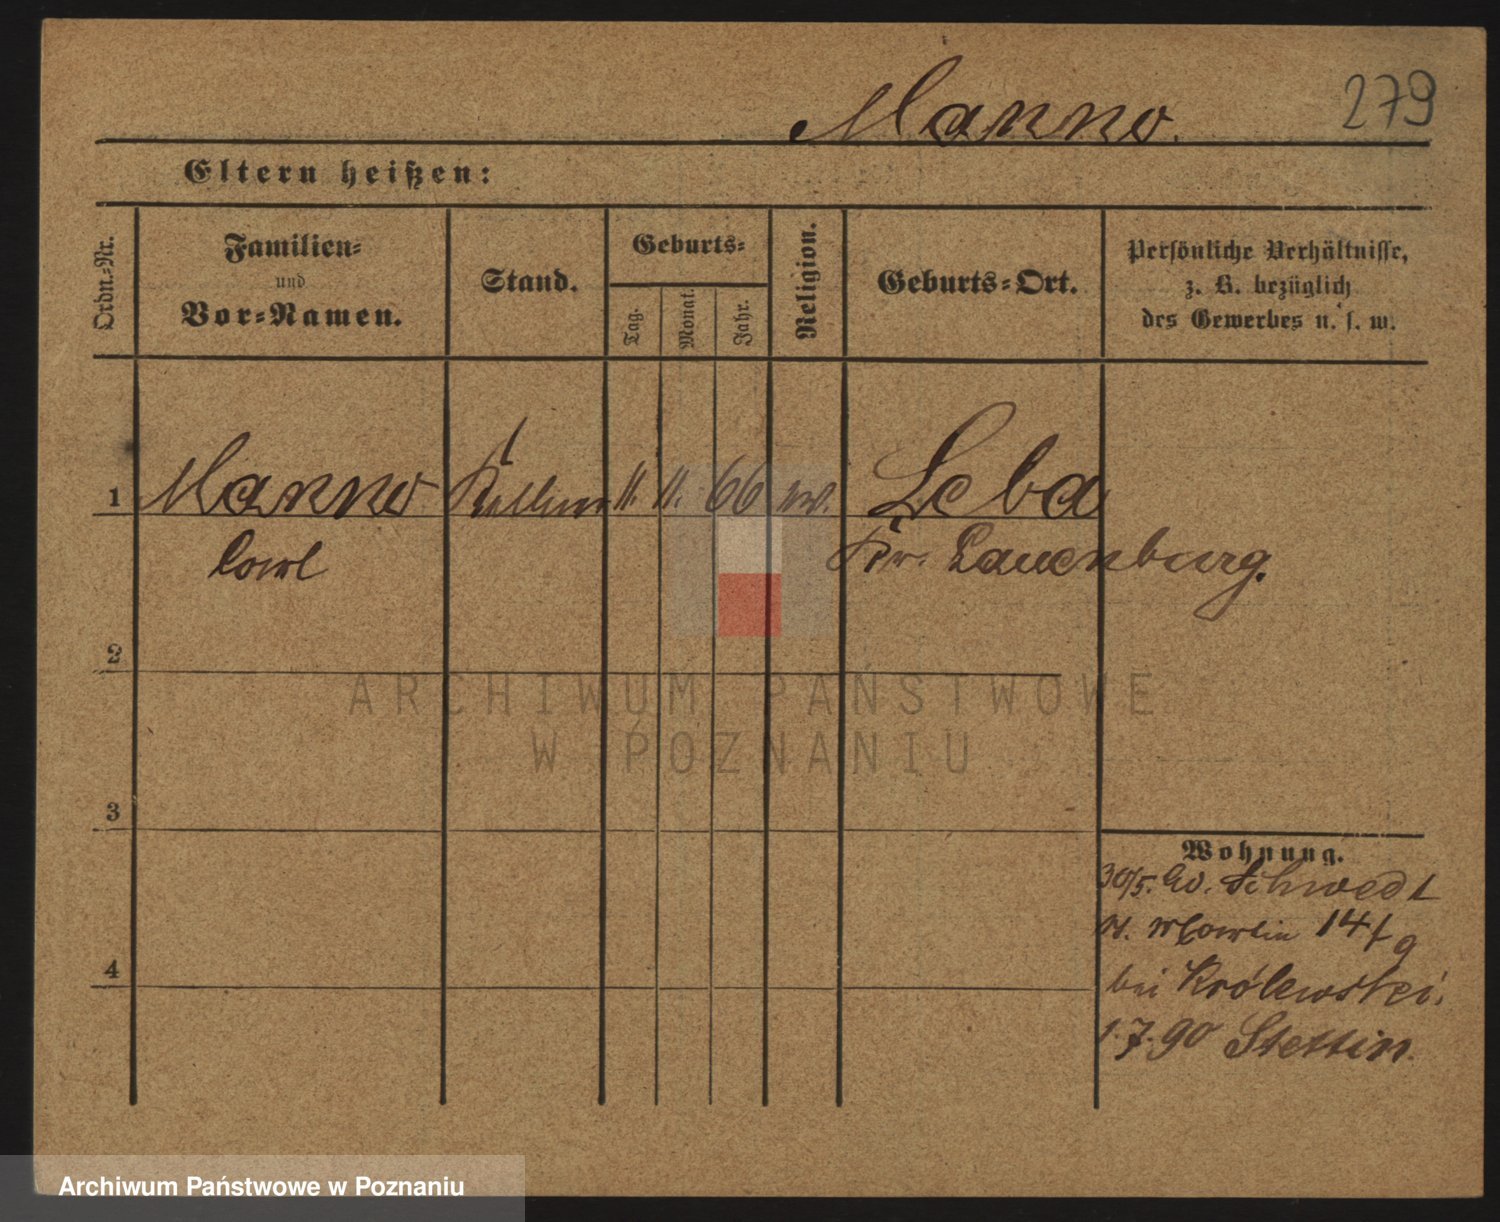 Manno.
279
Eltern heißen:
Ordn.-Nr.
Familien-
und
Vor-Namen.
Stand.
Geburts-
Tag.
Monat.
Jahr.
Religion.
Geburts-Ort.
Persönliche Verhältnisse,
z. B. bezüglich
des Gewerbes u. s. w.
1 Manno Kellner 11. 11. 66 Leba
Carl Kr. Lauenburg.
2
3
4
Wohnung.
30/5. Schwedt
14/9
bei Królewski.
1.7.90 Stettin.
ARCHIWUM PAŃSTWOWE
W POZNANIU
Archiwum Państwowe w Poznaniu